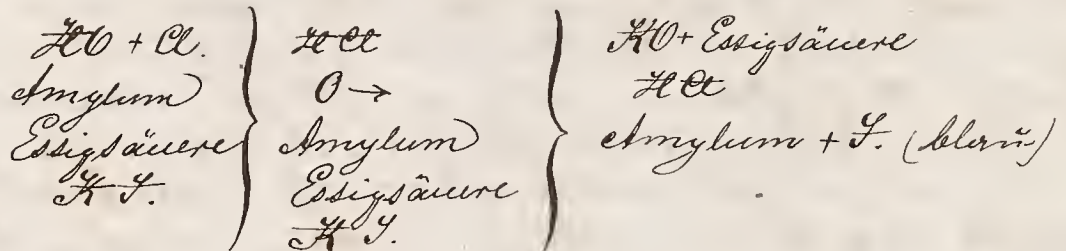 HO + Cl.
Amylum
Essigsäuere
K J.
HCl
O →
Amylum
Essigsäuere
K J.
KO + Essigsäuere
HCl
Amylum + J. (blau)